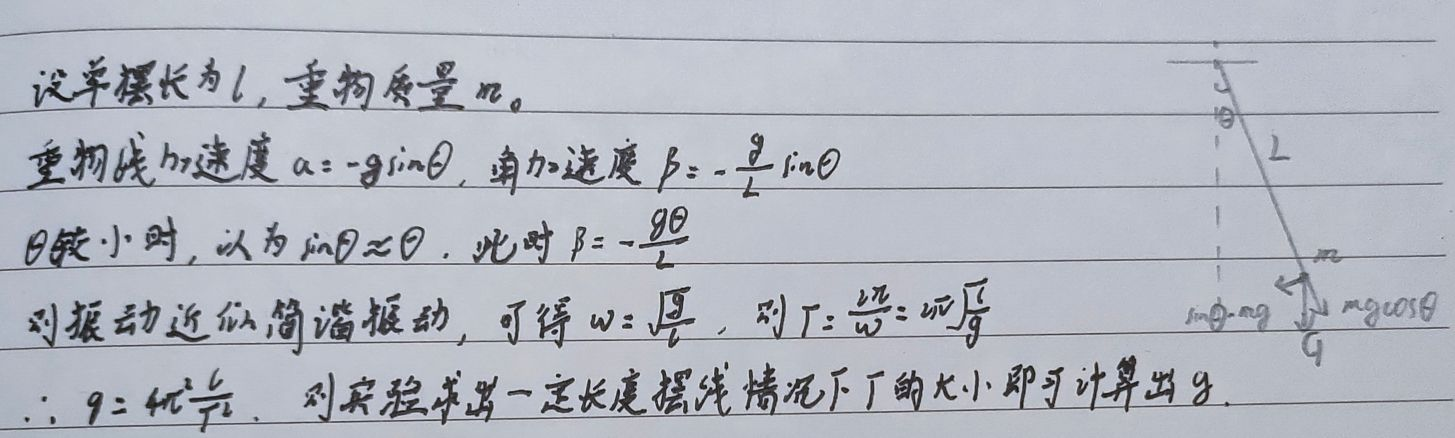 设单摆长为l,重物质量m。
重物线加速度 a=-gsinθ,角加速度 β=-\frac{g}{L}sinθ
θ较小时,认为sinθ≈θ.此时 β=-\frac{gθ}{L}
则振动近似简谐振动,可得 ω=\sqrt{\frac{g}{l}},则T=\frac{2π}{ω}=2π\sqrt{\frac{l}{g}}
∴ g=4π²\frac{l}{T²}.则实验求出一定长度摆线情况下T的大小即可计算出g.
θ
L
m
sinθ·mg
mgcosθ
G